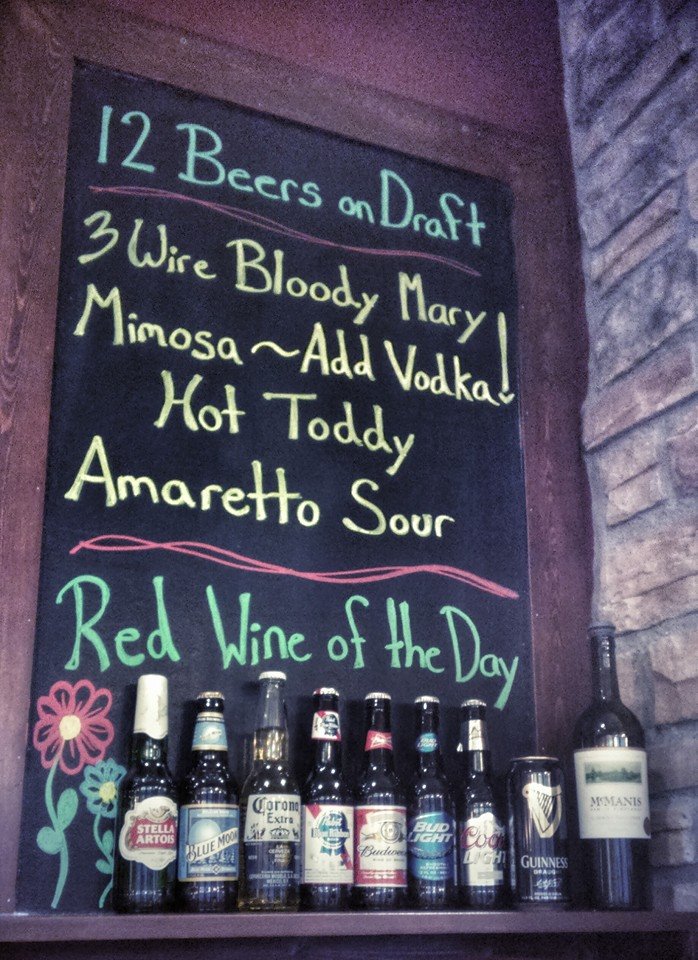 12 Beers on Draft
3 Wire Bloody Mary
Mimosa ~ Add Vodka!
Hot Toddy
Amaretto Sour
Red Wine of the Day
STELLA ARTOIS
BLUE MOON
Corona
Extra
Pabst
Blue Ribbon
Budweiser
BUD LIGHT
Coors
LIGHT
GUINNESS
DRAUGHT
McMANIS